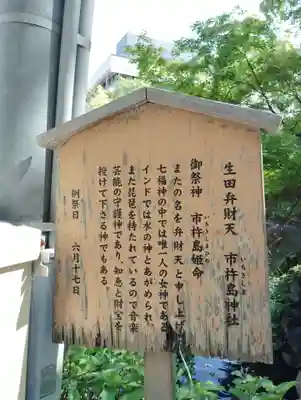 生田弁財天　市杵島神社
いちきしま
御祭神　市杵島姫命
いちきしまひめ
またの名を弁財天と申し上げ
七福神の中では唯一人の女神である
インドでは水の神とあがめられ
また琵琶を持たれているので音楽
芸能の守護神であり、知恵と財宝を
授けて下さる神でもある
例祭日　六月十七日